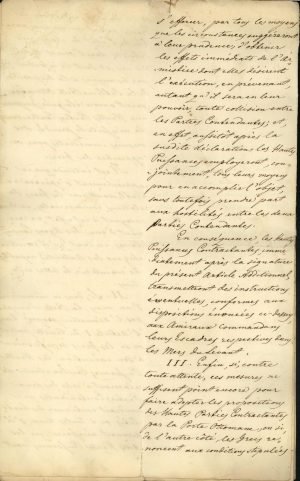 s'efforcer, par tous les moyens
que les circonstances suggéreront
à leur prudence, d'obtenir
les effets immédiats de l'Ar-
mistice dont elles désirent
l'exécution, en prévenant,
autant qu'il sera en leur
pouvoir, toute collision entre
les Parties Contendantes; et,
en effet, aussitôt après la
susdite déclaration, les Hautes
Puissances employeront, con-
jointement, tous leurs moyens
pour en accomplir l'objet,
sans toutefois prendre part
aux hostilités entre les deux
Parties Contendantes.
En conséquence les Hautes
Puissances Contractantes, immé-
diatement après la signature
du présent Article Additionnel,
transmettront des instructions
éventuelles, conformes aux
dispositions énoncées ci-dessus,
aux Amiraux Commandans
leurs Escadres respectives dans
les Mers du Levant.
III. Enfin, si, contre
toute attente, ces mesures ne
suffisent point encore pour
faire adopter les propositions
des Hautes Parties Contractantes
par la Porte Ottomane, ou si,
de l'autre côté, les Grecs re-
noncent aux conditions stipulées